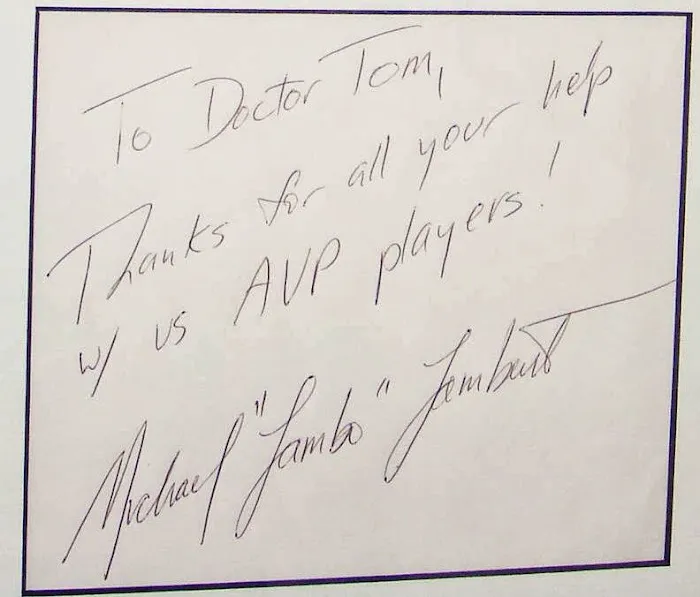 To Doctor Tom,
Thanks for all your help
w/ us AVP players!
Michael "Lambo" Lambert